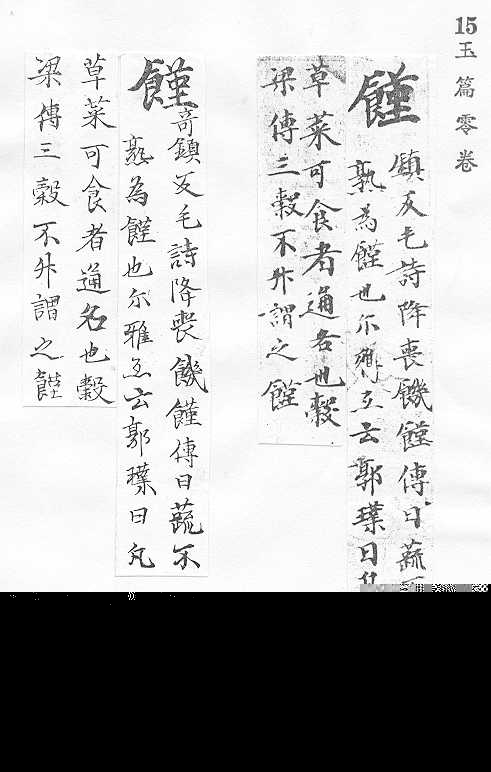 15玉篇零卷
饉
鎮反毛詩降喪饑饉傳曰蔬
熟為饉也尒雅亦云郭璞曰凡
草菜可食者通名也穀
梁傳三穀不升謂之饉
饉
奇鎮反毛詩降喪饑饉傳曰蔬不
熟為饉也尒雅亦云郭璞曰凡
草菜可食者通名也穀
梁傳三穀不升謂之饉